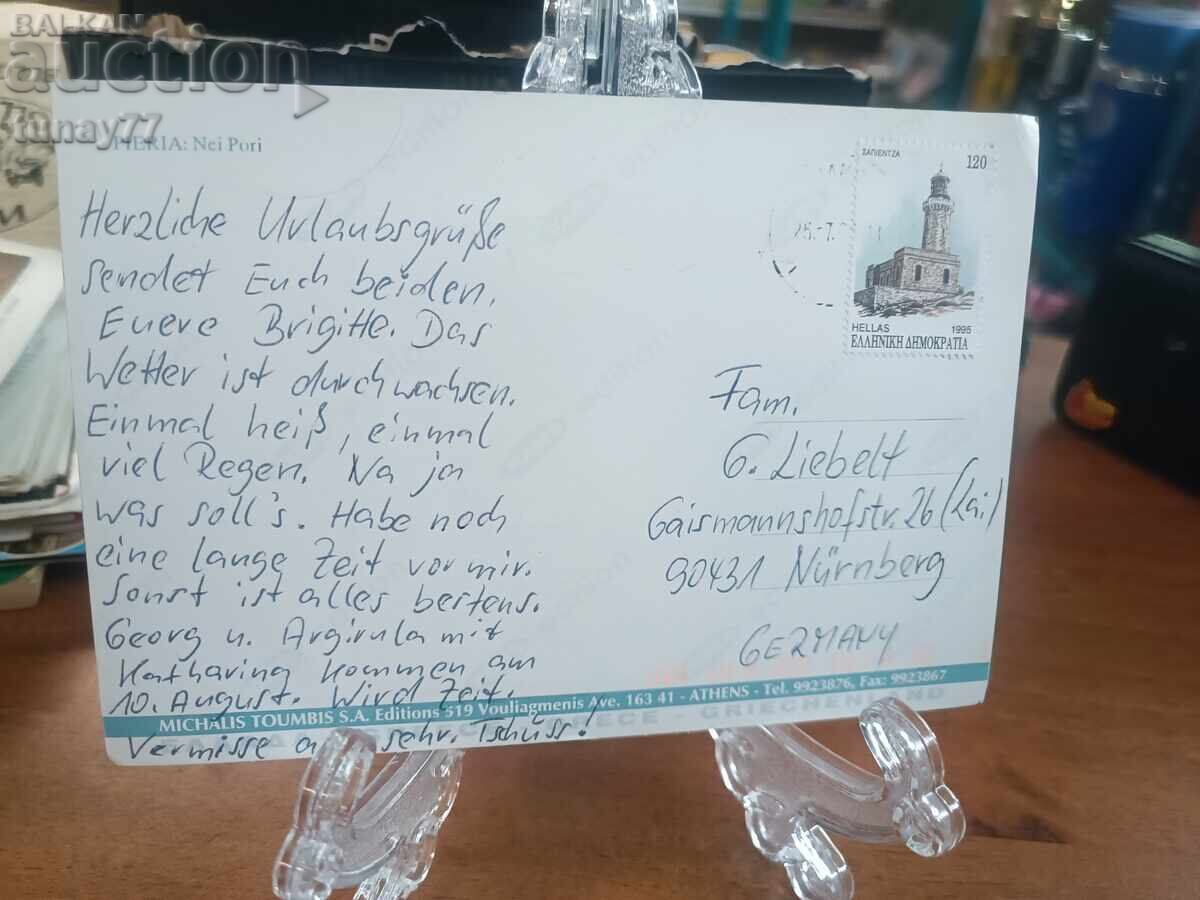 BALKAN
auction
tunay77
PIERIA: Nei Pori
Herzliche Urlaubsgrüße
sendet Euch beiden,
Euere Brigitte. Das
Wetter ist durchwachsen.
Einmal heiß, einmal
viel Regen. Na ja
was soll's. Habe noch
eine lange Zeit vor mir.
Sonst ist alles bestens.
Georg u. Argirula mit
Katharina kommen am
10. August. Wird Zeit.
Vermisse sehr. Tschüss!
ΣΑΠΙΕΝΤΖΑ
120
HELLAS 1995
ΕΛΛΗΝΙΚΗ ΔΗΜΟΚΡΑΤΙΑ
Fam.
G. Liebelt
Gaismannshofstr. 26 (Lai)
90431 Nürnberg
GERMANY
MICHALIS TOUMBIS S.A. Editions 519 Vouliagmenis Ave. 163 41 - ATHENS - Tel. 9923876, Fax: 9923867
GRIECHENLAND